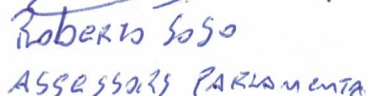 Roberto Soso
Assessors Parlamenta